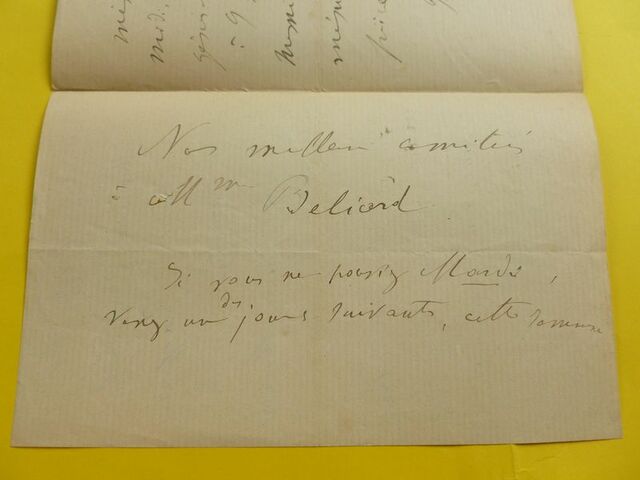 Nos meilleures amitiés
à Mme Béliard.
Si vous ne pouviez Mardi,
Venez un des jours suivants, cette semaine